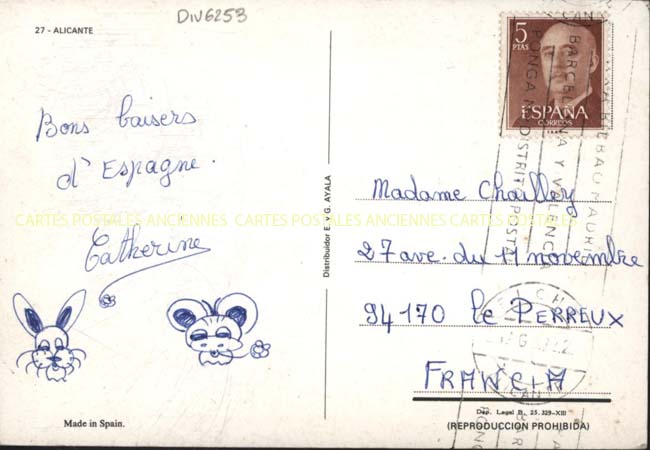 DIV6253
27 - ALICANTE
5
PTAS
ESPAÑA
CORREOS
BARCELONA Y VALENCIA
PONGA N. DISTRITO POSTAL
Bons baisers
d'Espagne.
Catherine
CARTES POSTALES ANCIENNES CARTES POSTALES ANCIENNES CARTES POSTALES
Distribuidor E. y G. AYALA
Madame Chailley
27 ave. du 11 novembre
94170 le PERREUX
FRANCIA
ELCHE
Made in Spain.
Dep. Legal B. 25.329-XIII
(REPRODUCCION PROHIBIDA)